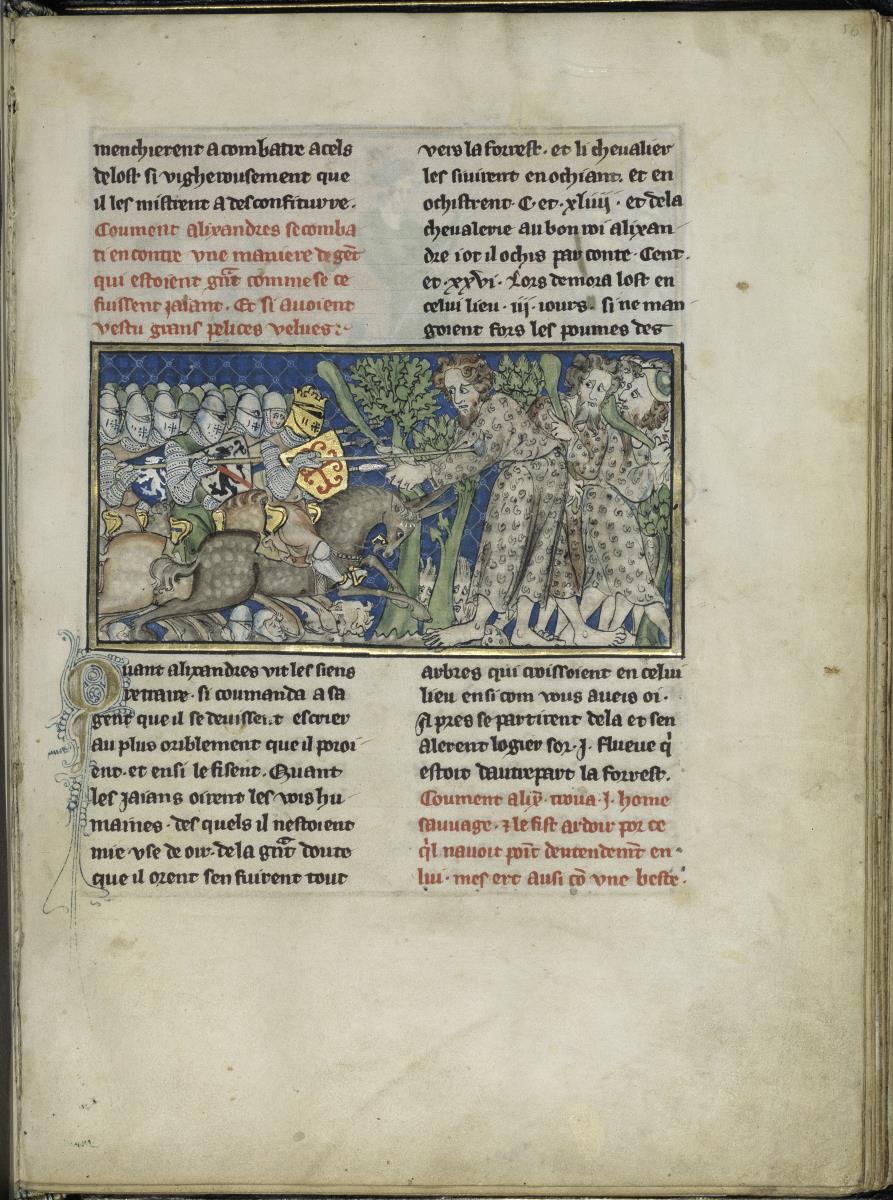 menchierent a combatre a cels
de lost si vigherousement que
il les mistrent a desconfiture.
Coument alixandres se comba
ti encontre vne maniere de gēt
qui estoient gr̄nt comme se ce
fuissent jaiant. Et si auoient
vestu grans pelices velues:
Quant alixandres vit les siens
retraire. si coumanda a sa
gent que il se deuissent escrier
au plus oriblement que il poroi
ent. et ensi le fisent. Quant
les jaians oirent les vois hu
maines. des quels il nestoient
mie vse de oir. de la gr̄nt doute
que il orent sen fuirent tout
vers la forrest. et li cheualier
les siuirent en ochiant. et en
ochistrent. C. et. xliiij. et de la
cheualerie au bon roi alixan
dre i ot il ochis par conte. Cent.
et. xxvi. Lors demora lost en
celui lieu. iij. iours. si ne man
goient fors les poumes des
arbres qui croissoient en celui
lieu ensi com vous aueis oi.
A pres se partirent de la et sen
alerent logier sor. j. flueue q̇
estoit dautrepart la forrest.
Coument alix̄. troua. j. home
sauuage. ⁊ le fist ardoir por ce
q̇l nauoit poīt dentendemēt en
lui. mes ert ausi cō vne beste.
56